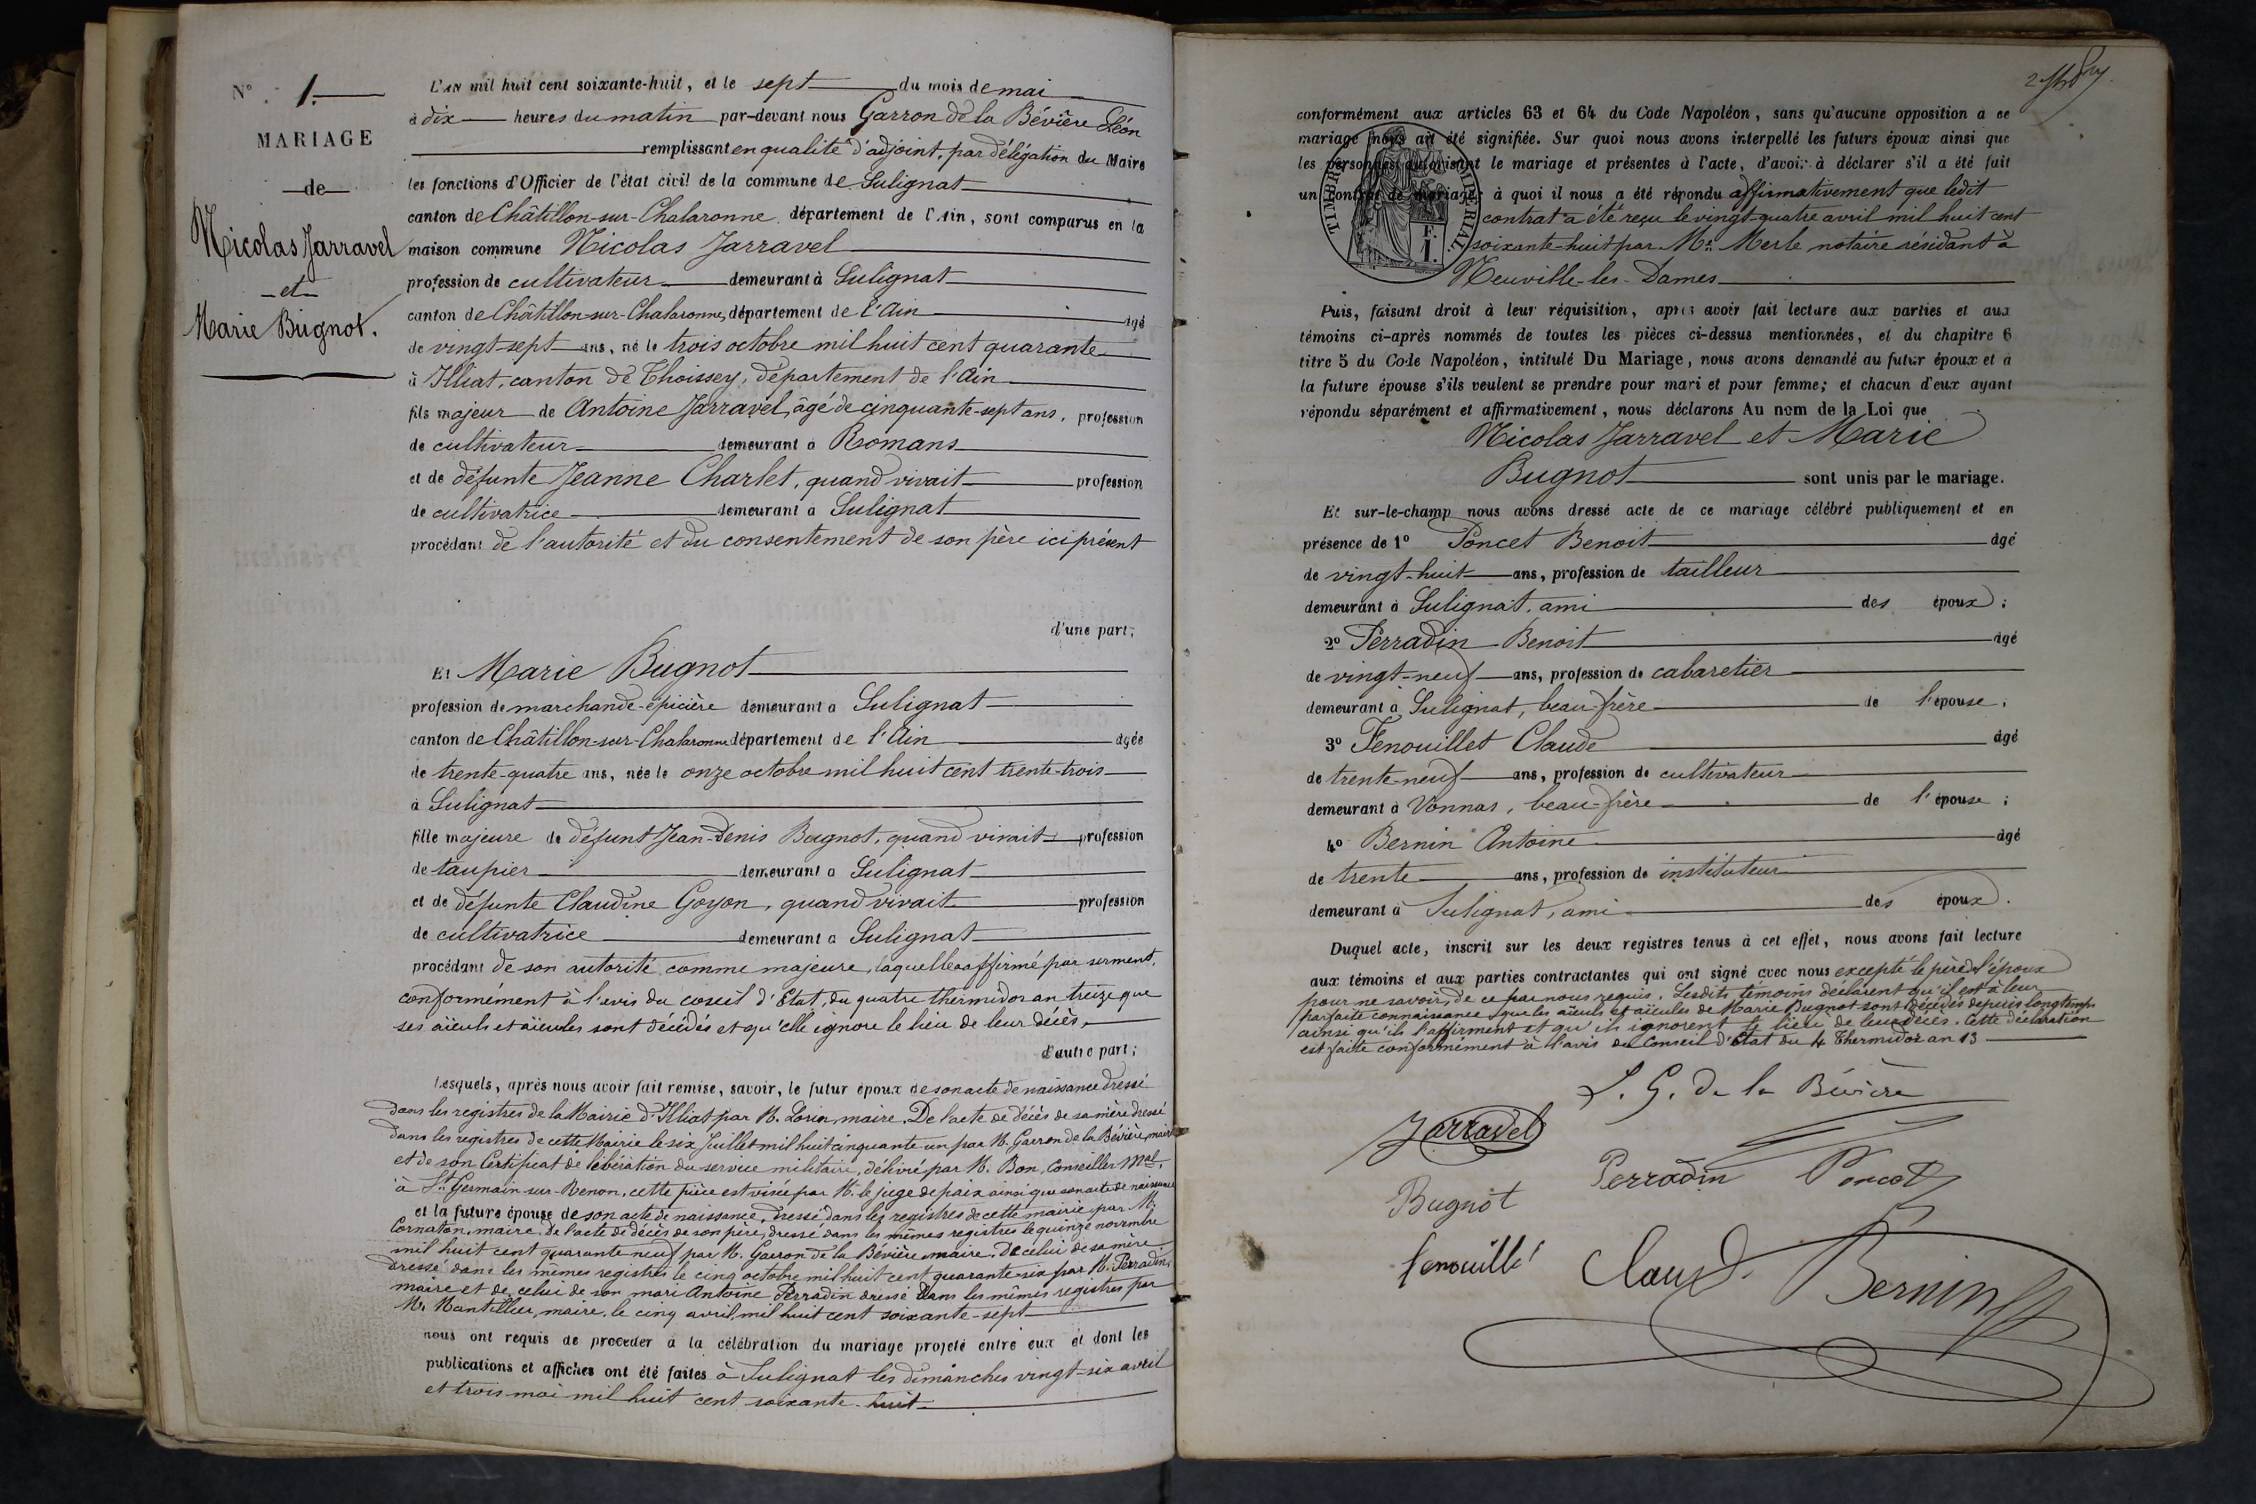 N° 1.
MARIAGE
de
Nicolas Jarravel
et
Marie Bugnot.
L'AN mil huit cent soixante-huit, et le sept du mois de mai
à dix heures du matin par-devant nous Garron de la Bévière Léon
remplissant en qualité d'adjoint, par délégation du Maire
les fonctions d'Officier de l'état civil de la commune de Sulignat
canton de Châtillon-sur-Chalaronne, département de l'Ain, sont comparus en la
maison commune Nicolas Jarravel
profession de cultivateur demeurant à Sulignat
canton de Châtillon-sur-Chalaronne, département de l'Ain âgé
de vingt-sept ans, né le trois octobre mil huit cent quarante
à Illiat, canton de Thoissey, département de l'Ain
fils majeur de Antoine Jarravel, âgé de cinquante-sept ans, profession
de cultivateur demeurant à Romans
et de défunte Jeanne Charlet, quand vivait profession
de cultivatrice demeurant à Sulignat
procédant de l'autorité et du consentement de son père ici présent
d'une part;
Et Marie Bugnot
profession de marchande-épicière demeurant à Sulignat
canton de Châtillon-sur-Chalaronne département de l'Ain âgée
de trente-quatre ans, née le onze octobre mil huit cent trente-trois
à Sulignat
fille majeure de défunt Jean-Denis Bugnot, quand vivait profession
de taupier demeurant à Sulignat
et de défunte Claudine Goyon, quand vivait profession
de cultivatrice demeurant à Sulignat
procédant de son autorité comme majeure, laquelle a affirmé par serment,
conformément à l'avis du coseil d'Etat, du quatre thermidor an treize que
ses aïeuls et aïeules sont décédés et qu'elle ignore le lieu de leur décès.
d'autre part;
Lesquels, après nous avoir fait remise, savoir, le futur époux de son acte de naissance dressé
dans les registres de la Mairie d'Illiat par M. Lorin, maire. De l'acte de décès de sa mère dressé
dans les registres de cette Mairie le six Juillet mil huit cinquante-un par M. Garron de la Bévière, maire
et de son Certificat de libération du service militaire, délivré par M. Bon, Conseiller Mal,
à St Germain-sur-Renon, cette pièce est visée par M. le juge de paix ainsi que son acte de naissance
et la future épouse de son acte de naissance, dressé dans les registres de cette mairie par M.
Cornaton, maire, De l'acte de décès de son père, dressé dans les mêmes registres le quinze novembre
mil huit cent quarante neuf par M. Garron de la Bévière maire. De celui de sa mère
dressé dans les mêmes registres le cinq octobre mil huit cent quarante-six par M. Perradin,
maire et de celui de son mari Antoine Perradin dressé dans les mêmes registres par
M. Mantillier, maire, le cinq avril mil huit cent soixante-sept
nous ont requis de procéder à la célébration du mariage projeté entre eux et dont les
publications et affiches ont été faites à Sulignat les dimanches vingt-six avril
et trois mai mil huit cent soixante-huit.
conformément aux articles 63 et 64 du Code Napoléon, sans qu'aucune opposition à ce
mariage nous ait été signifiée. Sur quoi nous avons interpellé les futurs époux ainsi que
les personnes autorisant le mariage et présentes à l'acte, d'avoir à déclarer s'il a été fait
un contrat de mariage; à quoi il nous a été répondu affirmativement que ledit
contrat a été reçu le vingt-quatre avril mil huit cent
soixante-huit par Me Merle notaire résidant à
Neuville-les-Dames
TIMBRE IMPÉRIAL
F.
1.
Puis, faisant droit à leur réquisition, après avoir fait lecture aux parties et aux
témoins ci-après nommés de toutes les pièces ci-dessus mentionnées, et du chapitre 6
titre 5 du Code Napoléon, intitulé Du Mariage, nous avons demandé au futur époux et à
la future épouse s'ils veulent se prendre pour mari et pour femme; et chacun d'eux ayant
répondu séparément et affirmativement, nous déclarons Au nom de la Loi que
Nicolas Jarravel et Marie
Bugnot sont unis par le mariage.
Et sur-le-champ nous avons dressé acte de ce mariage célébré publiquement et en
présence de 1° Poncet Benoit âgé
de vingt-huit ans, profession de tailleur
demeurant à Sulignat, ami des époux;
2° Perradin Benoit âgé
de vingt-neuf ans, profession de cabaretier
demeurant à Sulignat, beau-frère de l'épouse;
3° Fenouillet Claude âgé
de trente-neuf ans, profession de cultivateur
demeurant à Vonnas, beau-frère de l'épouse;
4° Bernin Antoine âgé
de trente ans, profession de instituteur
demeurant à Sulignat, ami des époux.
Duquel acte, inscrit sur les deux registres tenus à cet effet, nous avons fait lecture
aux témoins et aux parties contractantes qui ont signé avec nous excepté le père de l'époux
pour ne savoir, de ce par nous requis. Lesdits témoins déclarent qu'il est à leur
parfaite connaissance que les aïeuls et aïeules de Marie Bugnot sont décédés depuis longtemps
ainsi qu'ils l'affirment et qu'ils ignorent le lieu de leur décès. Cette déclaration
est faite conformément à l'avis du Conseil d'Etat du 4 Thermidor an 13
L. G. de la Bévière
Jarravel
Perradin Poncet
Bugnot
fenouillé Claude Bernin